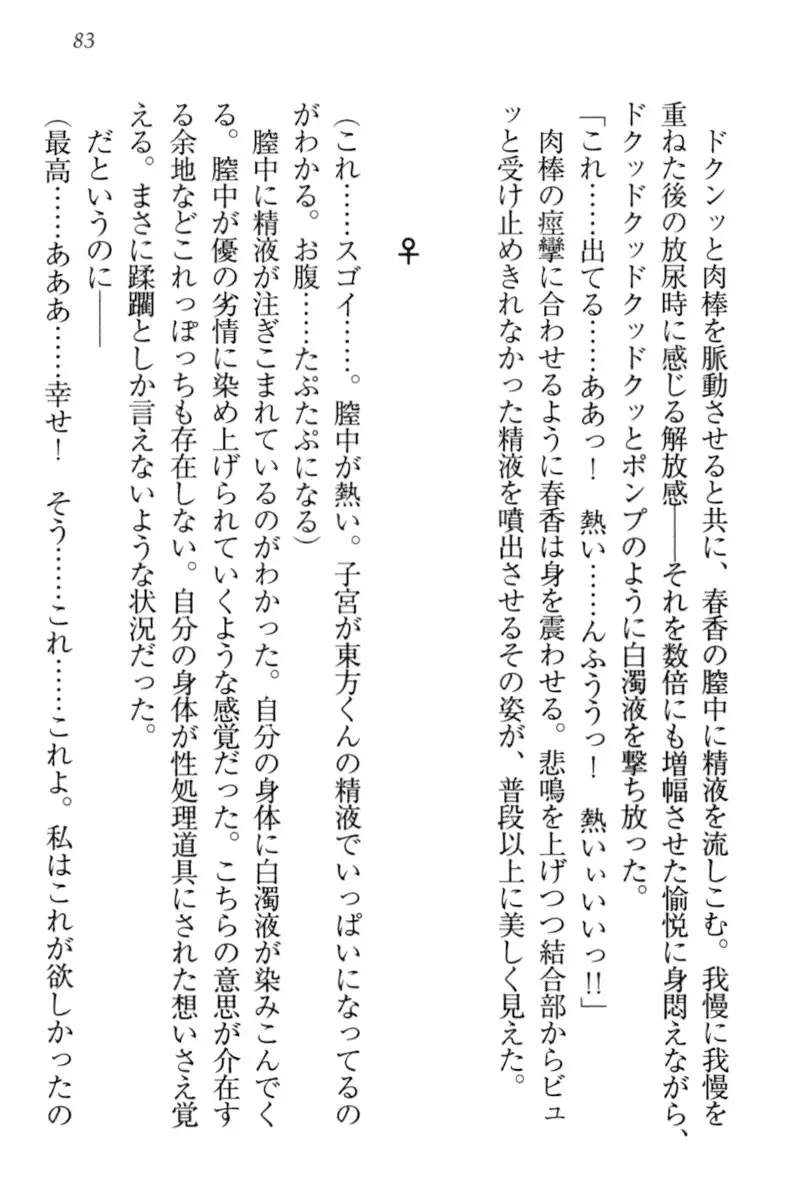 83
ドクンッと肉棒を脈動させると共に、春香の膣中に精液を流しこむ。我慢に我慢を
重ねた後の放尿時に感じる解放感――それを数倍にも増幅させた愉悦に身悶えながら、
ドクッドクッドクッドクッとポンプのように白濁液を撃ち放った。
「これ……出てる……ああっ！　熱い……んふううっ！　熱いぃいいっ!!」
肉棒の痙攣に合わせるように春香は身を震わせる。悲鳴を上げつつ結合部からビュ
ッと受け止めきれなかった精液を噴出させるその姿が、普段以上に美しく見えた。
♀
（これ……スゴイ……。膣中が熱い。子宮が東方くんの精液でいっぱいになってるの
がわかる。お腹……たぷたぷになる）
膣中に精液が注ぎこまれているのがわかった。自分の身体に白濁液が染みこんでく
る。膣中が優の劣情に染め上げられていくような感覚だった。こちらの意思が介在す
る余地などこれっぽっちも存在しない。自分の身体が性処理道具にされた想いさえ覚
える。まさに蹂躙としか言えないような状況だった。
だというのに――
（最高……あああ……幸せ！　そう……これ……これよ。私はこれが欲しかったの